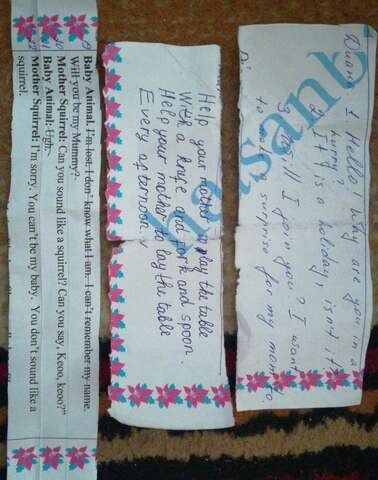 Baby Animal. I'm lost. I don't know what I am. I can't remember my name.
Will you be my Mummy?
Mother Squirrel: Can you sound like a squirrel? Can you say, Keoo, keoo?"
21 Baby Animal: Ugh.
Mother Squirrel: I'm sorry. You can't be my baby. You don't sound like a
squirrel.
Help your mother to lay the table
With a knife and fork and spoon.
Help your mother to lay the table
Every afternoon.
1 Hello! Why are you in a
hurry?
2 It is a holiday, isn't it?
3 I join you? I want
to make a surprise for my